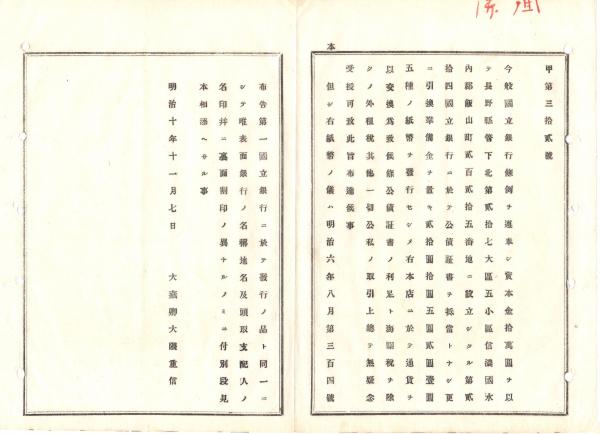 甲第三拾貳號
今般國立銀行條例ヲ遵奉シ資本金拾萬圓ヲ以
テ長野縣管下北第貳拾七大區五小區信濃國水
內郡飯山町貳百貳拾五番地ニ設立シタル第貳
拾四國立銀行ニ於テ公債証書ヲ抵當トナシ更
ニ引換準備金ヲ置キ貳拾圓拾圓五圓貳圓壹圓
五種ノ紙幣ヲ發行セシメ右本店ニ於テ通貨ヲ
以交換爲致候條公債証書ノ利足ト海關稅ヲ除
クノ外租稅其他一切公私ノ取引上總テ無疑念
受授可致此旨布達候事
但シ右紙幣ノ儀ハ明治六年八月第三百四號
布告第一國立銀行ニ於テ發行ノ品ト同一ニ
シテ唯表面銀行ノ名稱地名及頭取支配人ノ
名印幷ニ裏面割印ノ異ナルノミニ付別段見
本相添ヘサル事
明治十年十一月七日
大藏卿大隈重信
本